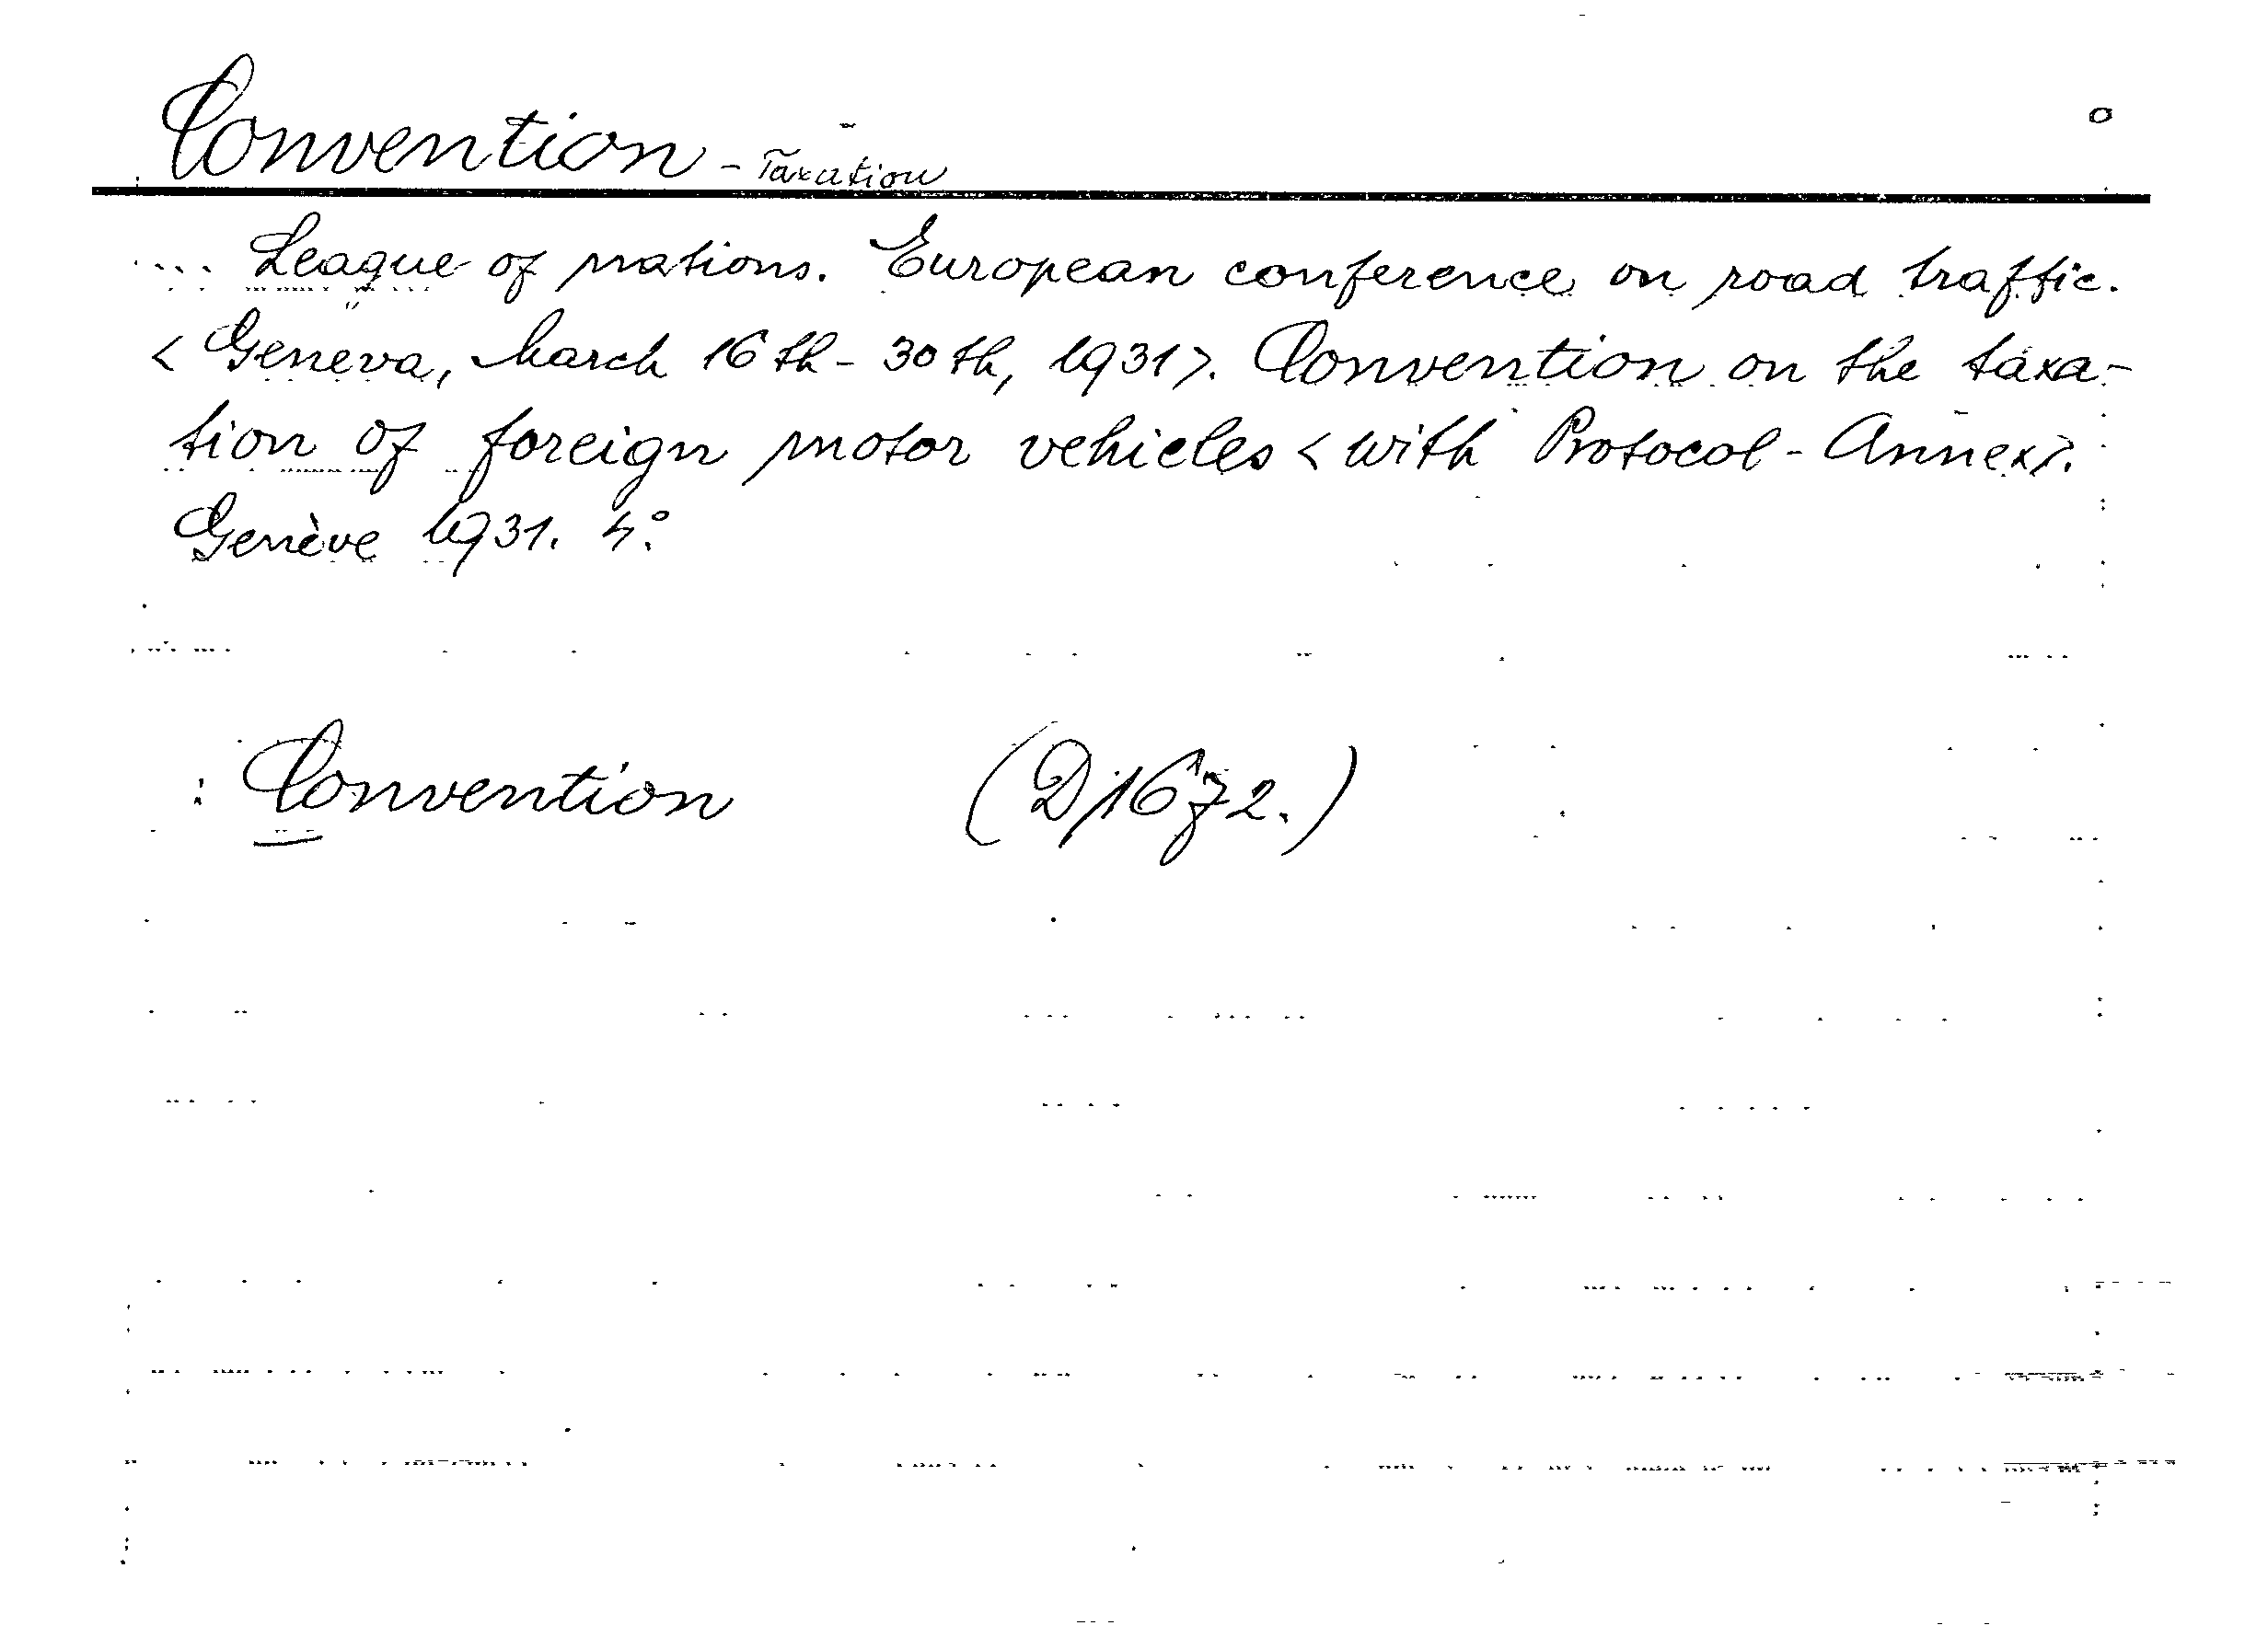 Convention - Taxation
... League of nations. European conference on road traffic.
< Geneva, March 16th - 30th, 1931>. Convention on the taxa-
tion of foreign motor vehicles < with Protocol - Annex>.
Genève 1931. 4°.
: Convention (D1672.)